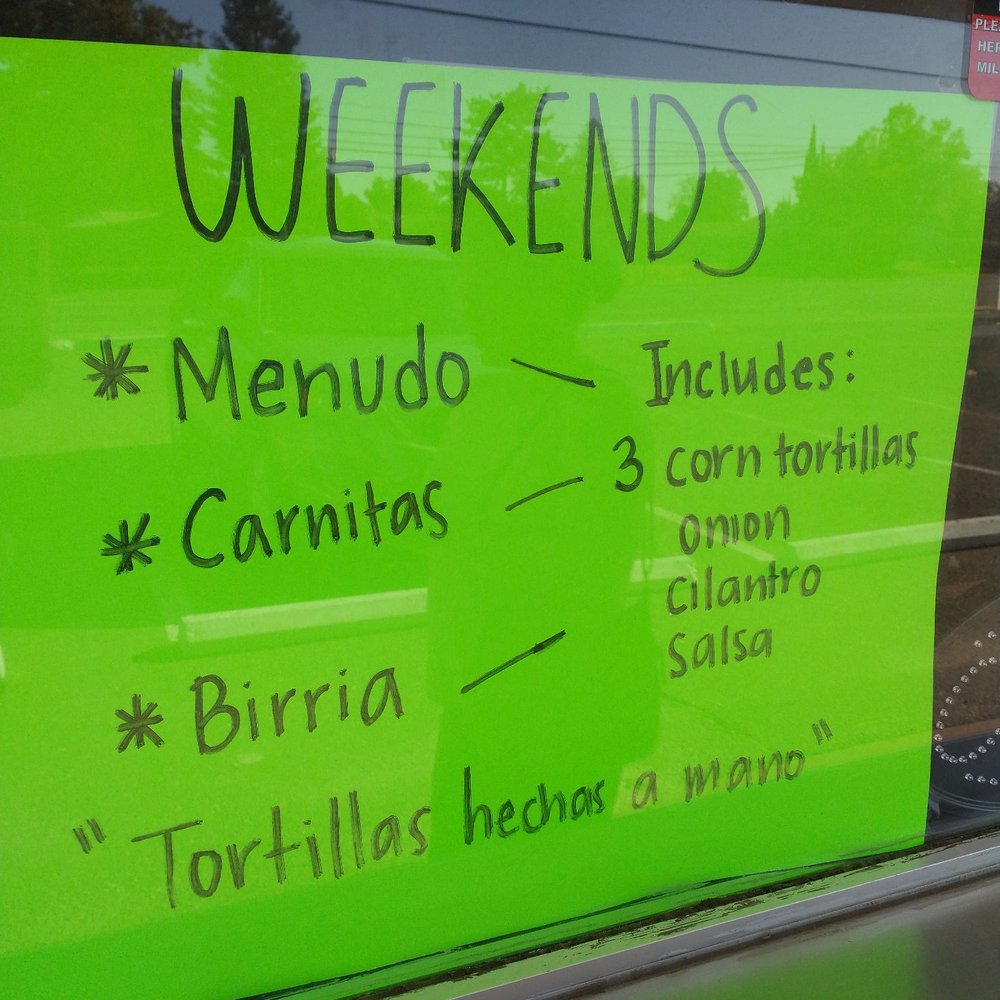 WEEKENDS
* Menudo - Includes:
* Carnitas - 3 corn tortillas
onion
cilantro
salsa
* Birria -
"Tortillas hechas a mano"